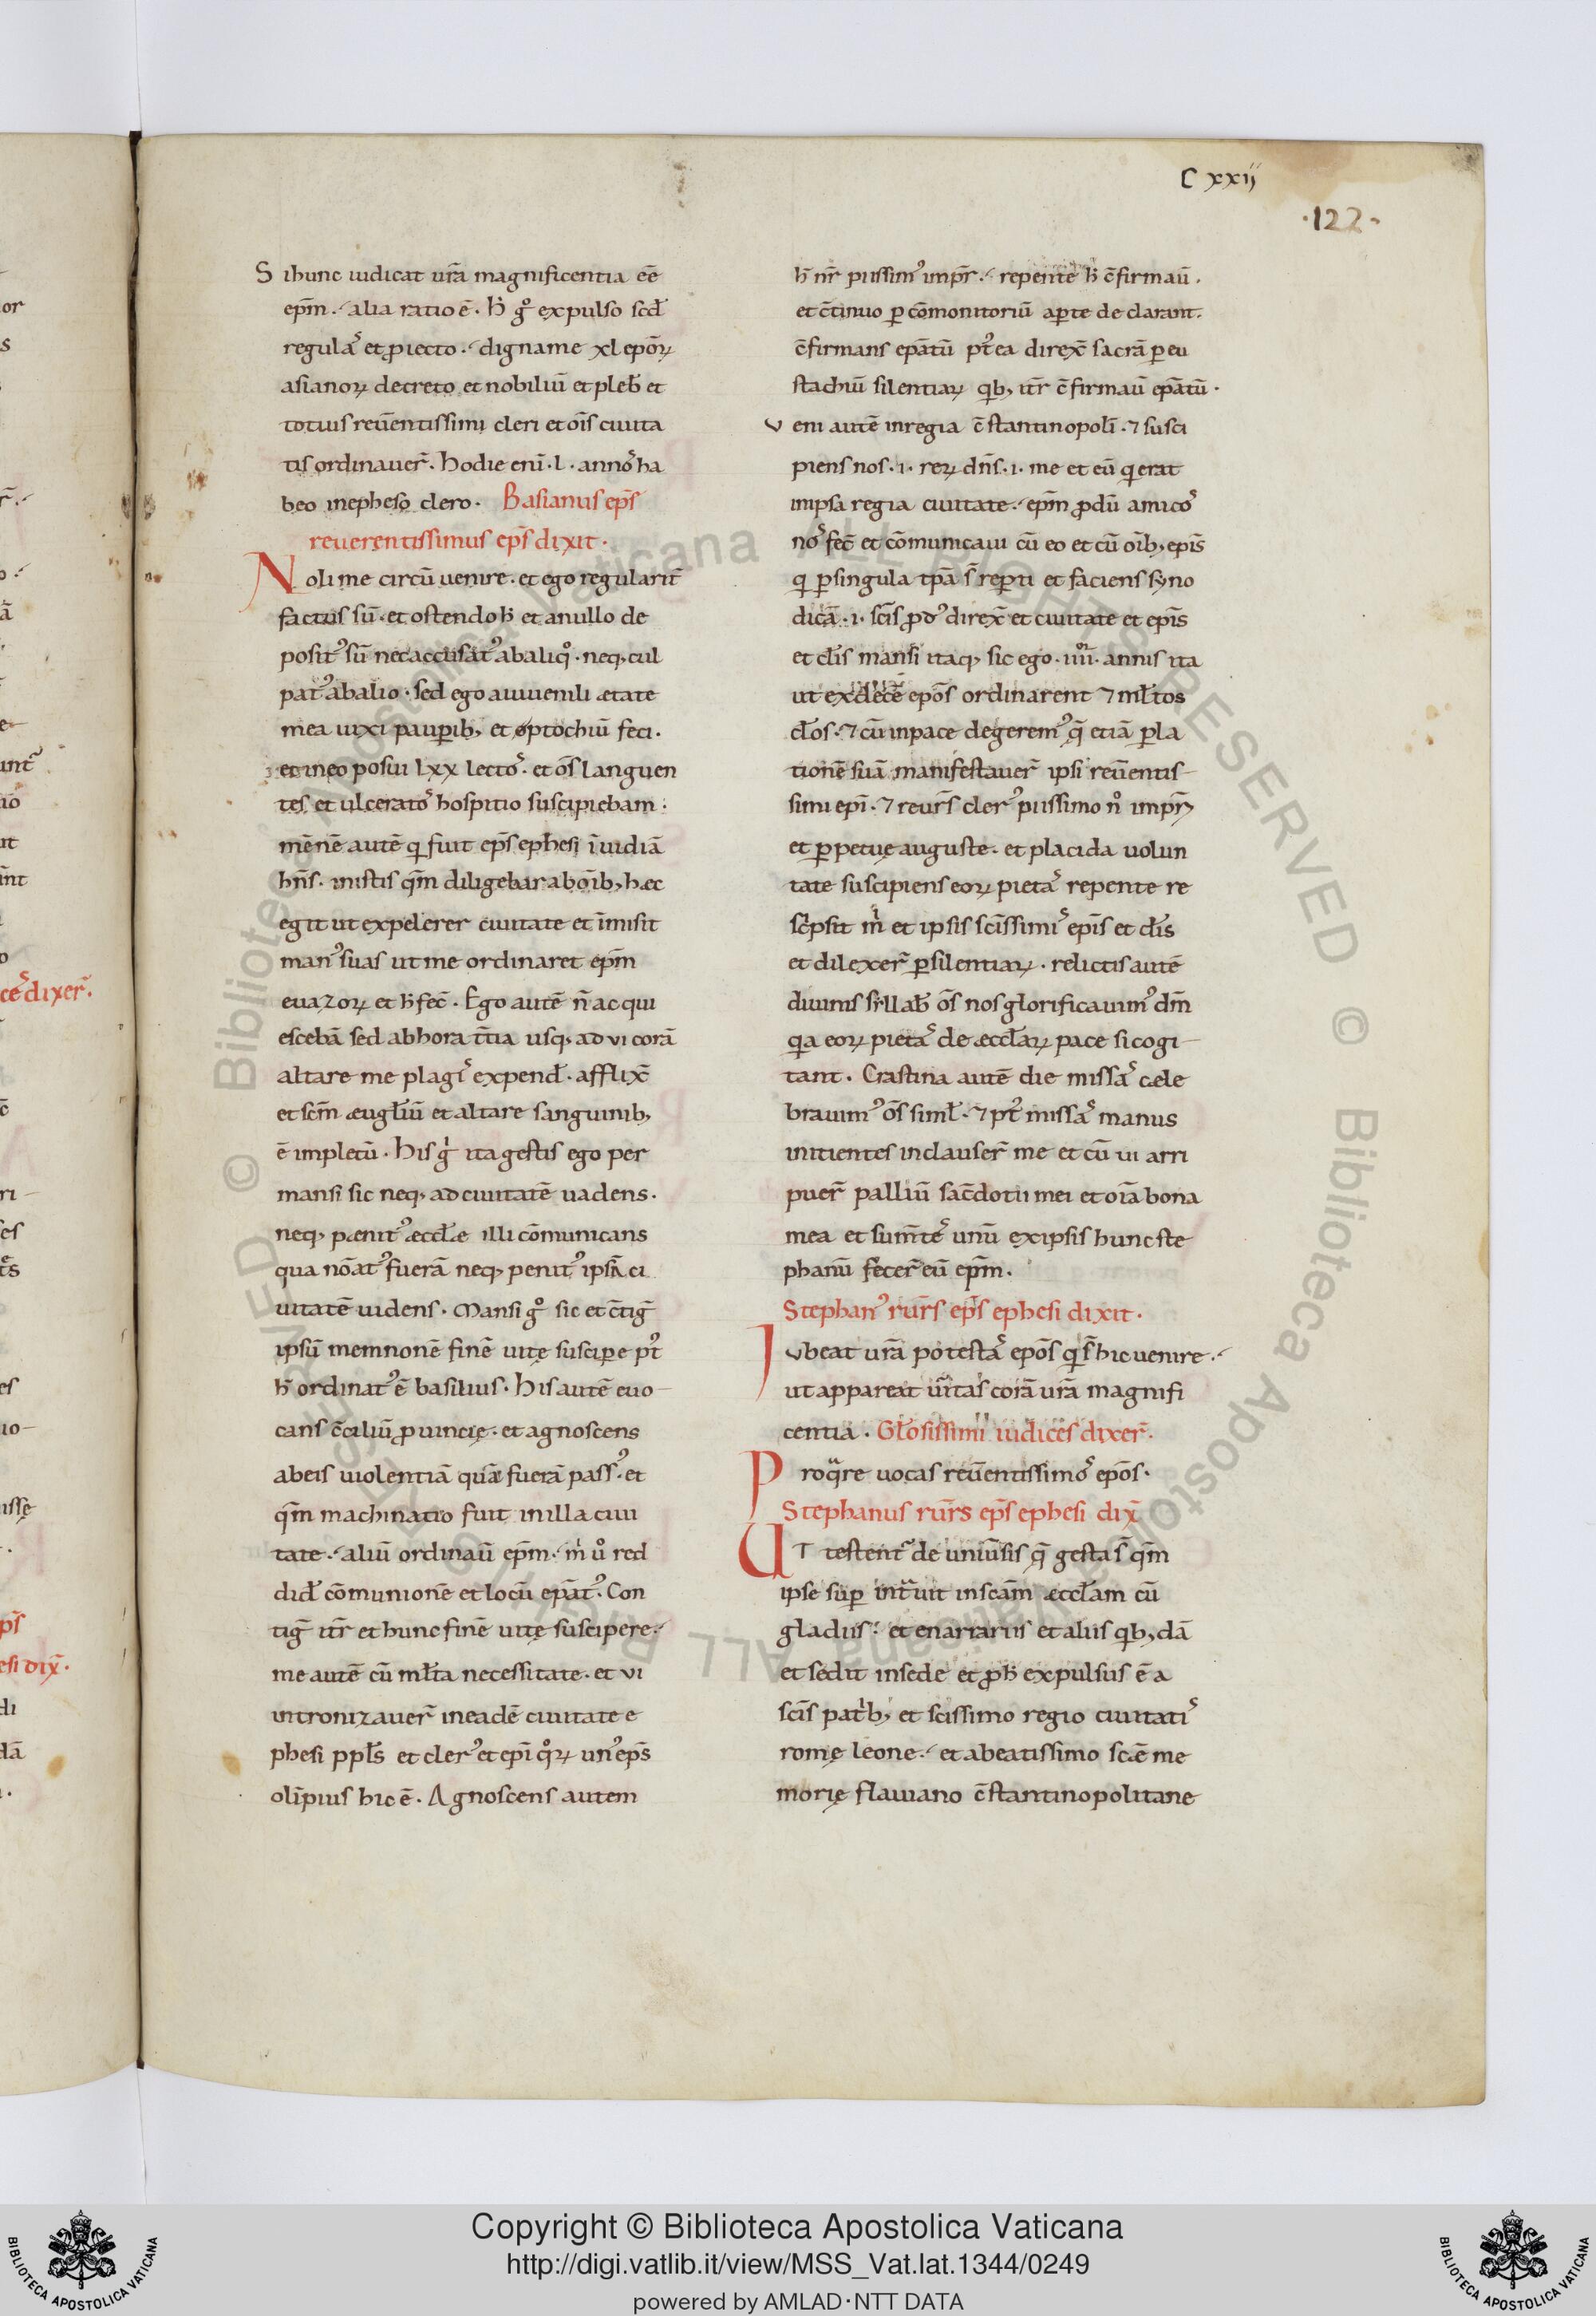 C xxij
·122·
Si hunc iudicat urã magnificentia eẽ
epm̃. alia ratio ẽ. h̃ g° expulso scđ
regulaˢ et ꝓiecto. digname xl epõꝝ
asianoꝝ decreto et nobiliũ et pleb̃ et
totius reũentissimi cleri et oĩs ciuita
tis ordinauer̃. hodie enĩ .l. annoˢ ha
beo in epheso clero. Basianus ep̃s
reuerentissimus ep̃s dixit.
Noli me circũ uenire. et ego regularit̃
factus sũ. et ostendo h̃ et a nullo de
positꝰ sũ nec accusatꝰ ab aliq°. neq; cul
patꝰ ab alio. sed ego a iuuenili ætate
mea uixi pauꝑib; et optochiũ feci.
et in eo posui lxx lectoˢ. et õs languen
tes et ulceratoˢ hospitio suscipiebam.
mẽnẽ autẽ q̣ fuit ep̃s ephesi ĩuidiã
hñs. in istis qm̃ diligebar ab oĩb; hæc
egit ut expelerer ciuitate et ĩmisit
manꝰ suas ut me ordinaret epm̃
euazoꝝ et h̃ fec̃. Ego autẽ ñ acqui
escebã sed ab hora t̃tia usq; ad vi corã
altare me plagiˢ expend̃. afflix̃
et scm̃ æugl̃iũ et altare sanguinib;
ẽ impletũ. his gͥ ita gestis ego per
mansi sic neq; ad ciuitatẽ uadens.
neq; pænitꝰ æccl̃æ illi cõmunicans
qua nõatꝰ fuerã neq; penitꝰ ipsã ci
uitatẽ uidens. Mansi g° sic et c̃tig̃
ipsũ memnonẽ finẽ uitę susciꝑe ptꝰ
h̃ ordinatꝰ ẽ basilius. his autẽ euo
cans c̃ciliũ ꝓuincię. et agnoscens
ab eis uiolentiã quã fuerã passꝰ. et
qm̃ machinatio fuit in illa ciui
tate. aliũ ordinaũ epm̃. mͥ u° red
did̃ cõmunionẽ et locũ epãtꝰ. Con
tig̃ it̃r et hunc finẽ uitę suscipere.
me autẽ cũ ml̃ta necessitate. et vi
intronizauer̃ in eadẽ ciuitate e
phesi ppl̃s et clerꝰ et epĩ q°ꝝ unꝰ ep̃s
olĩpius hic ẽ. Agnoscens autem
h̃ nr̃ piissimꝰ imp̃r. repente h̃ c̃firmaũ.
et c̃tinuo ꝑ cõmonitoriũ aꝑte declarant.
c̃firmans epãtũ ptꝰea direx̃ sacrã ꝑ eu
stachiũ silentiaꝝ qͥb; it̃r c̃firmaũ epãtũ.
Veni autẽ in regia c̃stantinopolĩ. ⁊ susci
piens nos .i. reꝝ dñs .i. me et eũ q̣ erat
in ipsa regia ciuitate. epm̃ ꝓdũ amicoˢ
noˢ fec̃ et cõmunicaui cũ eo et cũ oĩb; epĩs
q̣ ꝑ singula tpã s̃ reꝑti et faciens syno
dicã .i. scĩs direx̃ et ciuitate et epĩs
et cl̃is mansi itaq; sic ego .iiii. annis ita
ut ex decẽ epõs ordinarent ⁊ ml̃tos
cl̃os. ⁊ cũ in pace degeremꝰ q̃ etiã ꝑ la
tionẽ suã manifestauer̃ ipsi reũentis
simi epĩ. ⁊ reur̃s clerꝰ piissimo n° imp̃r
et ꝑpetuę auguste. et placida uolun
tate suscipiens eoꝝ pietaˢ repente re
scͥpsit mͥ et ipsis scĩssimiˢ epĩs et cl̃is
et dilexer̃ ꝑ silentiaꝝ. relictis autẽ
diuinis syllab̃ õs nos glorificauimꝰ dm̃
qa eoꝝ pietaˢ de æccl̃aꝝ pace si cogi
tant. Crastina autẽ die missaˢ cæle
brauimꝰ õs siml̃. ⁊ ptꝰ missaˢ manus
initientes inclauser̃ me et cũ ui arri
puer̃ palliũ sac̃dotii mei et oĩa bona
mea et sum̃teˢ unũ ex ipsis hunc ste
phanũ fecer̃ eũ epm̃.
Stephanꝰ rur̃s ep̃s ephesi dixit.
Iubeat urã potestaˢ epõs q̣ s̃ hic uenire.
ut appareat ũitas corã urã magnifi
centia. Gl̃osissimi iudices dixer̃.
Proqͣre uocas reũentissimoˢ epõs.
Stephanus rur̃s ep̃s ephesi dix̃
UT testentˢ de uniũsis q̃ gesta s̃ qm̃
ipse suꝑ intͣuit in scãm æccl̃am cũ
gladiis. et enarrariis et aliis qͥb; dã
et sedit in sede et ꝓ h̃ expulsus ẽ a
scĩs patͥb; et scissimo regio ciuitatiˢ
romę leone. et a beatissimo scæ̃ me
morię flauiano c̃stantinopolitane
or
s
ceˢ dixer̃.
Copyright © Biblioteca Apostolica Vaticana
http://digi.vatlib.it/view/MSS_Vat.lat.1344/0249
powered by AMLAD·NTT DATA
BIBLIOTECA APOSTOLICA VATICANA
BIBLIOTECA APOSTOLICA VATICANA
© Biblioteca Apostolica Vaticana ALL RIGHTS RESERVED © Biblioteca Apostolica Vaticana ALL RIGHTS RESERVED